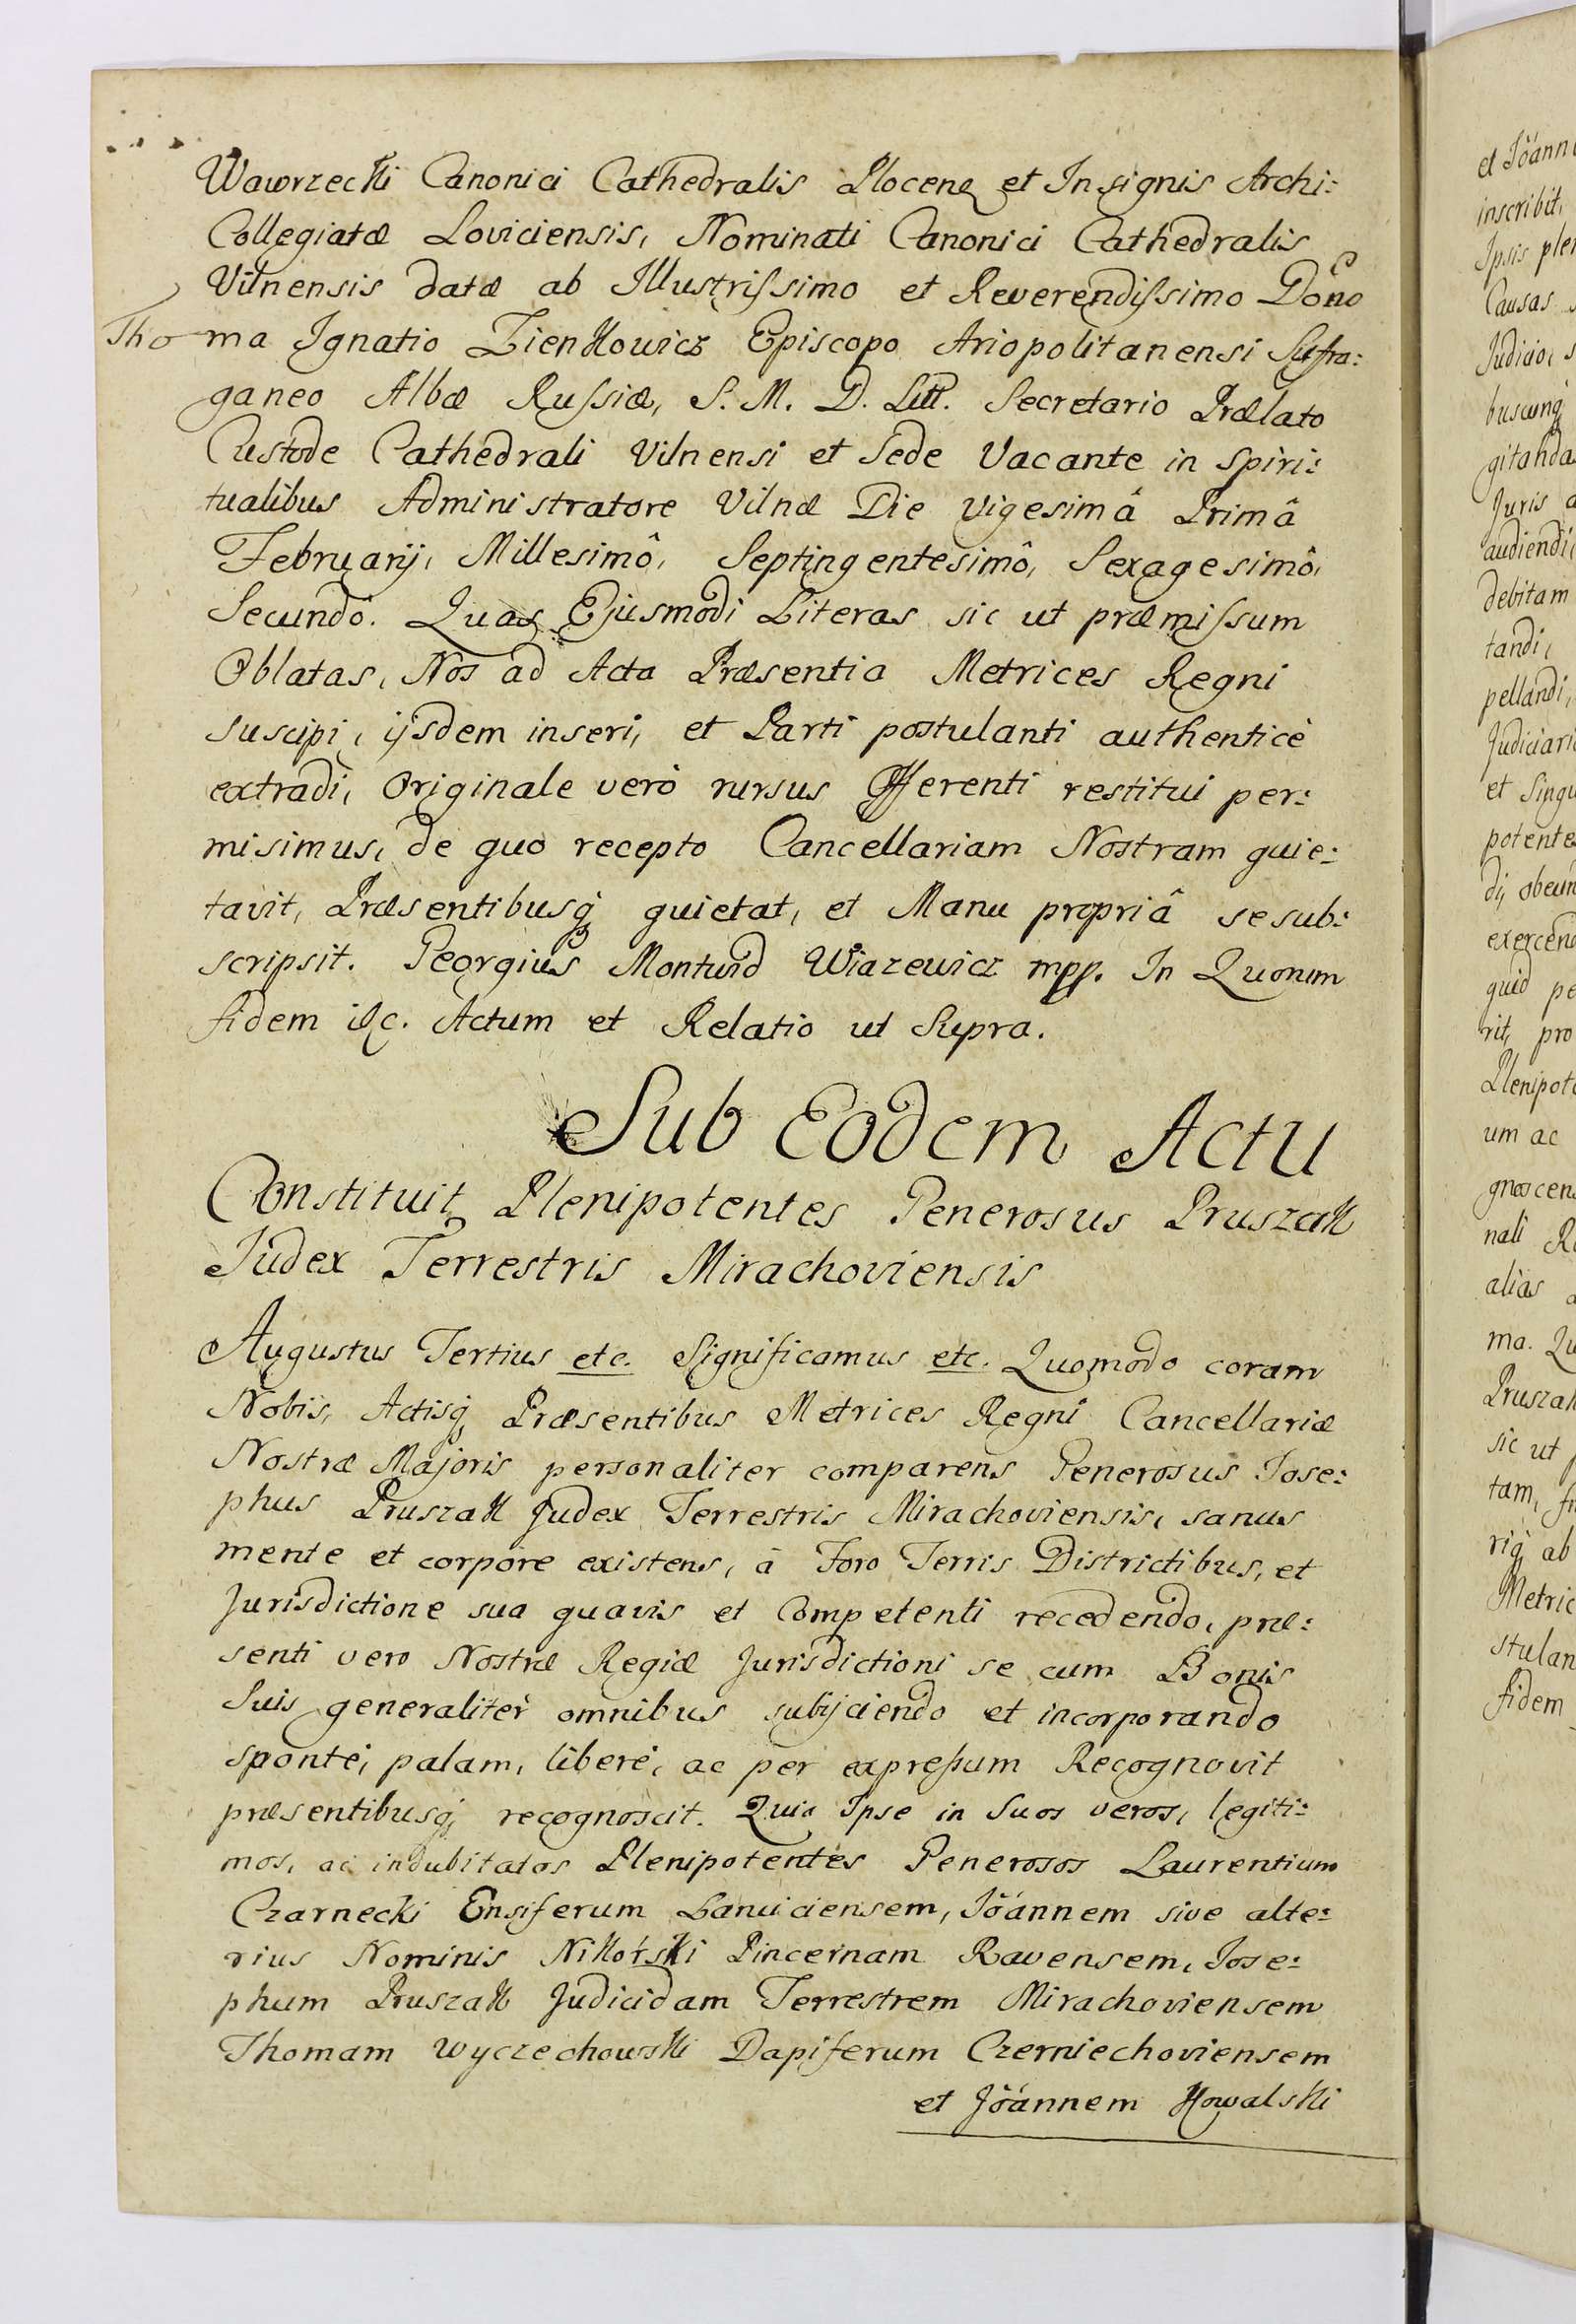 Wawrzecki Canonici Cathedralis Plocens et Insignis Archi:
Collegiatæ Loviciensis, Nominati Canonici Cathedralis
Vilnensis datæ ab Illustrissimo et Reverendissimo Dōno
Thoma Ignatio Zienkowicz Episcopo Ariopolitanensi Suffra:
ganeo Albæ Russiæ, S. M. D. Litt. Secretario Prælato
Custode Cathedrali Vilnensi et Sede Vacante in Spiri:
tualibus Administratore Vilnæ Die Vigesimâ Primâ
Februarij, Millesimô, Septingentesimô, Sexagesimô,
Secundo. Quas Ejusmodi Literas sic ut præmissum
Oblatas, Nos ad Acta Præsentia Metrices Regni
suscipi, ijsdem inseri, et Parti postulanti authenticè
extradi, Originale verò rursus Offerenti restitui per:
misimus, de quo recepto Cancellariam Nostram quie:
tavit, Præsentibusq quietat, et Manu propriâ se sub:
scripsit. Georgius Montwid Wiazewicz mpp. In Quorum
fidem &c. Actum et Relatio ut Supra.
Sub Eodem Actu
Constituit Plenipotentes Generosus Pruszak
Judex Terrestris Mirachoviensis
Augustus Tertius etc. Significamus etc. Quomodo coram
Nobis, Actisq Præsentibus Metrices Regni Cancellariæ
Nostræ Majoris personaliter comparens Generosus Jose:
phus Pruszak Judex Terrestris Mirachoviensis, sanus
mente et corpore existens, à Foro Terris Districtibus, et
Jurisdictione sua quavis et Competenti recedendo, præ:
senti vero Nostræ Regiæ Jurisdictioni se cum Bonis
Suis generalitèr omnibus subijciendo et incorporando
spontè, palam, liberè, ac per expressum Recognovit
præsentibusq, recognoscit. Quia Ipse in Suos veros, legiti:
mos, ac indubitatos Plenipotentes Generosos Laurentium
Czarnecki Ensiferum Lanciciensem, Jōannem sive alte:
rius Nominis Nikorski Pincernam Ravensem, Jose:
phum Pruszak Judicidam Terrestrem Mirachoviensem
Thomam Wyczechowski Dapiferum Czerniechoviensem
et Jōannem Kowalski
et Jōann
inscribit,
Ipsis plen
Causas
Judicio, s
buscunq
gitanda
Juris a
audiendi
debitam
tandi,
pellandi,
Judiciari
et Singu
potente
di, obeun
exercend
quid pe
rit, pro
Plenipot
um ac
gnoscen
nali R
alias a
ma. Qu
Pruszak
sic ut p
tam, fu
riq, ab
Metric
stulan
fidem